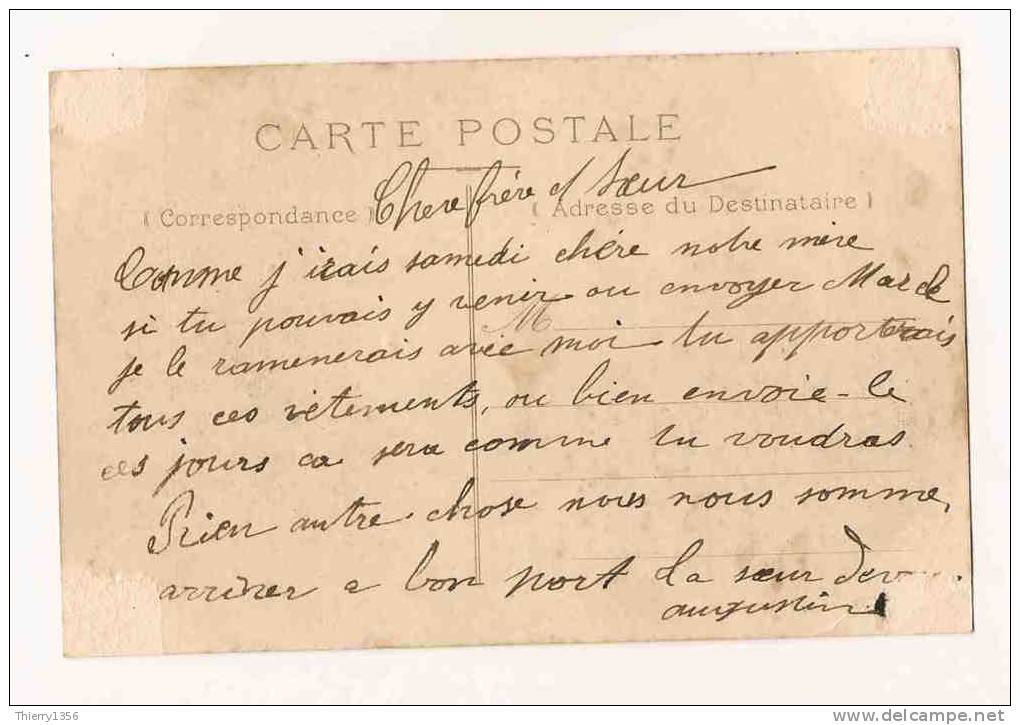 CARTE POSTALE
Chere frére et Sœur
( Correspondance )
( Adresse du Destinataire )
Comme j'irais samedi chére notre mère
si tu pouvais y venir ou envoyer Marcle
M
je le ramenerais avec moi tu apporterais
tous ces vétements, ou bien envoie-le
ces jours ca sera comme tu voudras
Rien autre chose nous nous somme
arriver a bon port ta sœur
augustine
Thierry1356
delcampe.net